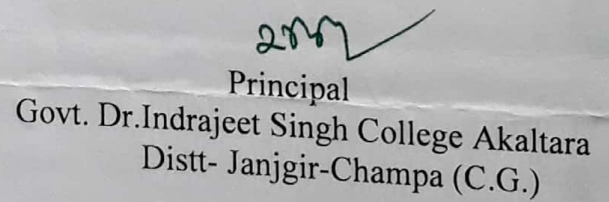 Principal
Govt. Dr.Indrajeet Singh College Akaltara
Distt- Janjgir-Champa (C.G.)